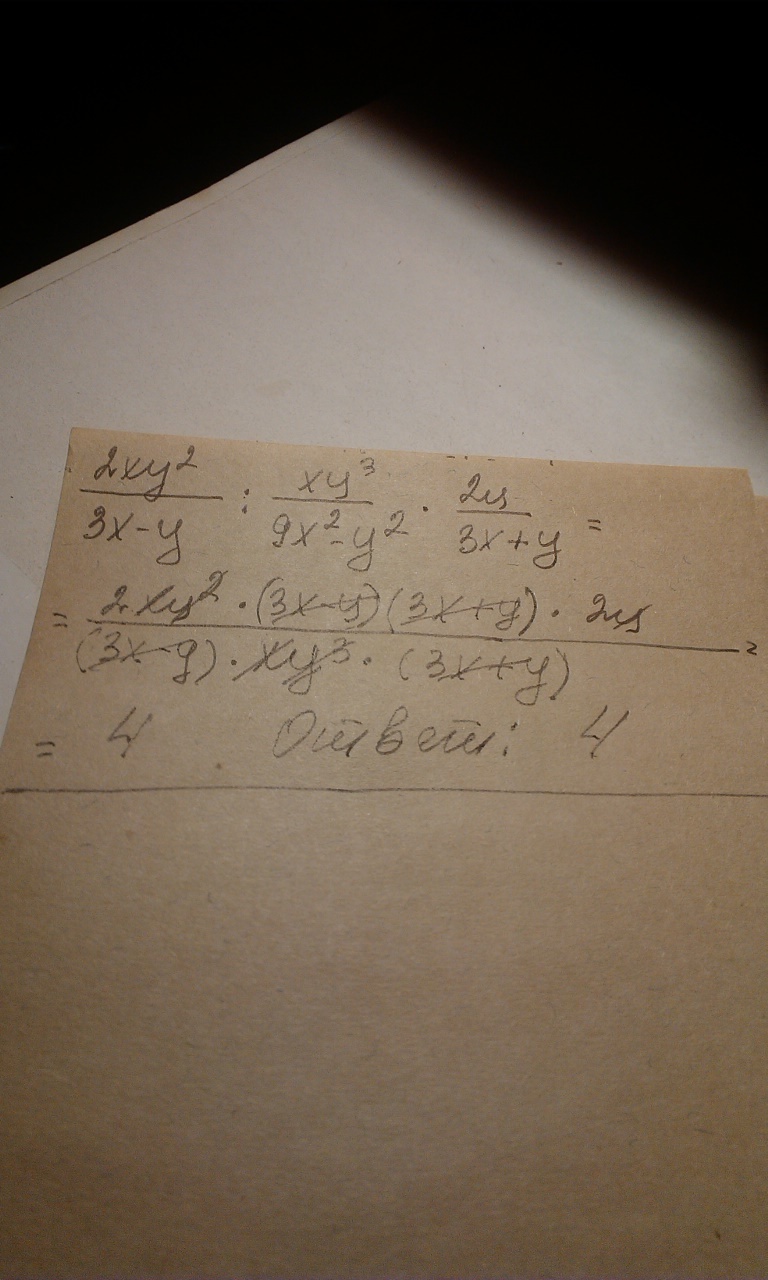 2xy²/(3x-y) : xy³/(9x²-y²) · 2y/(3x+y) =
= 2xy²·(3x-y)(3x+y)·2y/((3x-y)·xy³·(3x+y)) =
= 4 Ответ: 4